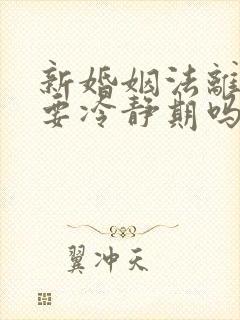 新婚姻法離
要冷静期吗
翼冲天